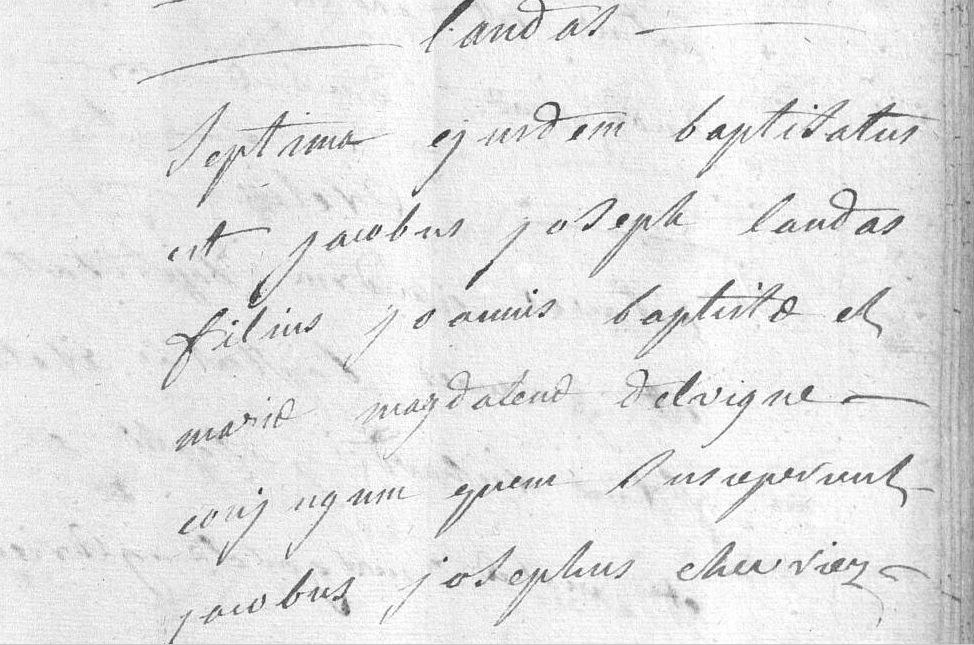 landas
Septima ejusdem baptisatus
est jacobus joseph landas
filius joannis baptistæ et
mariæ magdalenæ delvigne
conjugum quem Susceperunt
jacobus josephus